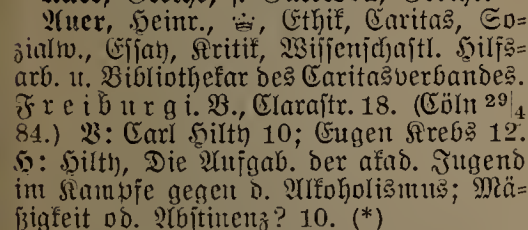 Auer, Heinr., Ethik, Caritas, So-
zialw., Essay, Kritik, Wissenschaftl. Hilfs-
arb. u. Bibliothekar des Caritasverbandes.
Freiburg i. B., Clarastr. 18. (Cöln 29|4
84.) V: Carl Hilty 10; Eugen Krebs 12.
H: Hilty, Die Aufgab. der akad. Jugend
im Kampfe gegen d. Alkoholismus; Mä-
ßigkeit od. Abstinenz? 10. (*)